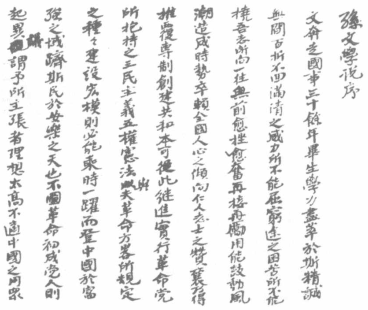 孫文學說序
文奔走國事三十餘年畢生學力盡萃於斯精誠
無間百折不回滿清之威力所不能屈窮途之困苦所不能
撓吾志所向一往無前愈挫愈奮再接再勵用能鼓動風
潮造成時勢卒賴全國人心之傾向仁人志士之贊襄乃得
推覆專制創建共和本可從此繼進實行革命黨
所抱持之三民主義五權憲法與夫革命方畧所規定
之種々建設宏模則必能乘時一躍而登中國於富
強之域躋斯民於安樂之天也不圖革命初成黨人則
起異議謂予所主張者理想太高不適中國之用衆